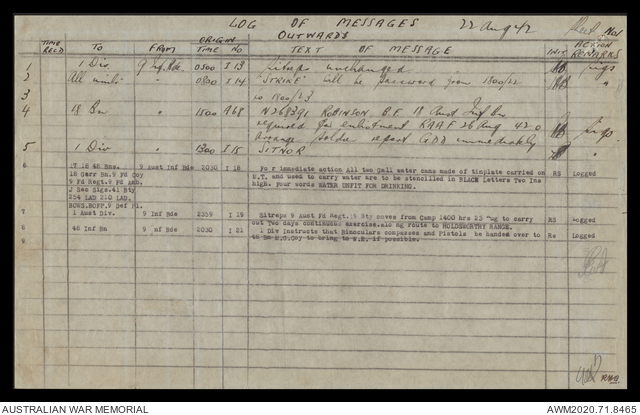 LOG OF MESSAGES 22 Aug 42 Sheet No 1
OUTWARDS
TIME RECD TO FROM ORIGIN TIME NO TEXT OF MESSAGE INIT ACTION REMARKS
1 1 Div 9 Inf Bde 0500 I 13 Sitreps unchanged
2 All units " 0900 I 14 "STRIKE" will be password from 1800/22
3 to 1800/23
4 18 Bn " 1500 A68 N268391 ROBINSON B.F. 18 Aust Inf Bn
required for enlistment RAAF 26 Aug 42
arrange soldier report GDD immediately
5 1 Div " 1300 I 15 SITNOR "
6 17 18 48 Bns. 9 Aust Inf Bde 2030 I 18 For immediate action All two gall water cans made of tinplate carried on RS Logged
18 Garr Bn. 9 Fd Coy M.T. and used to carry water are to be stencilled in BLACK letters Two Ins
9 Fd Regt. 9 Fd Amb. high. four words WATER UNFIT FOR DRINKING.
J Sec Sigs. 41 Bty
254 LAD 210 LAD.
9 Def Pl.
7 1 Aust Div. 9 Inf Bde 2359 I 19 Sitreps 9 Aust Fd Regt. 19 Bty moves from Camp 1400 hrs 23 Aug to carry RS Logged
out Two days continuous exercise. along route to HOLDSWORTHY RANGE.
8 48 Inf Bn 9 Inf Bde 2030 I 21 1 Div Instructs that Binoculars compasses and Pistols be handed over to Rs Logged
9 48 Bn M.G.Coy to bring to W.E. if possible.
AUSTRALIAN WAR MEMORIAL AWM2020.71.8465